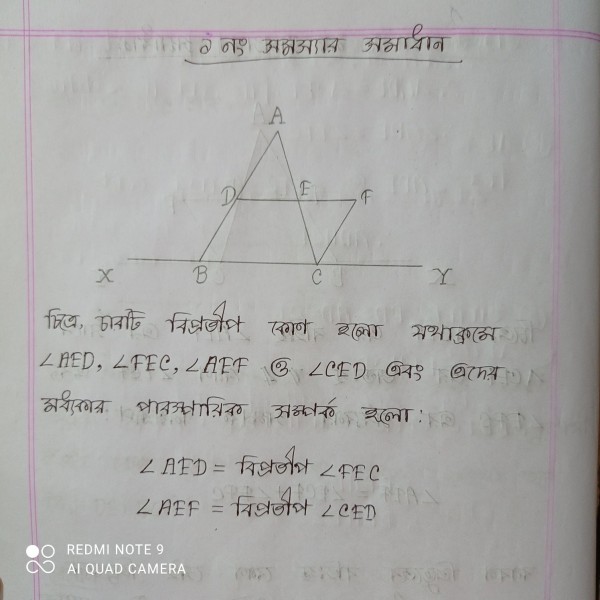 ২ নং সমস্যার সমাধান
A
D E F
X B C Y
চিত্রে, চারটি বিপ্রতীপ কোণ হলো যথাক্রমে
∠AED, ∠FEC, ∠AEF ও ∠CED এবং এদের
মধ্যকার পারস্পারিক সম্পর্ক হলো:
∠AED = বিপ্রতীপ ∠FEC
∠AEF = বিপ্রতীপ ∠CED
REDMI NOTE 9
AI QUAD CAMERA